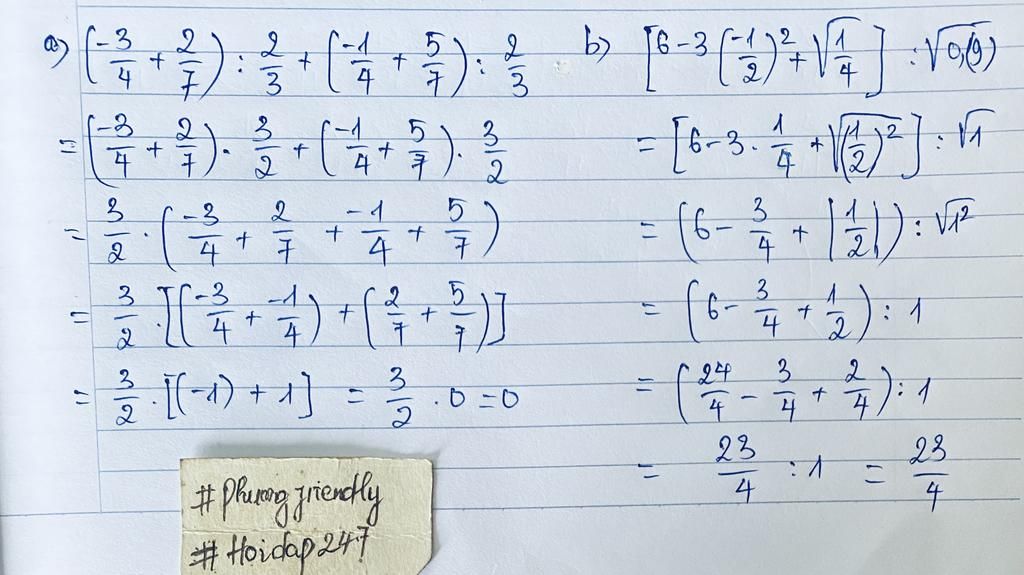 a) (-3/4 + 2/7) : 2/3 + (-1/4 + 5/7) : 2/3
= (-3/4 + 2/7) . 3/2 + (-1/4 + 5/7) . 3/2
= 3/2 . (-3/4 + 2/7 + -1/4 + 5/7)
= 3/2 . [(-3/4 + -1/4) + (2/7 + 5/7)]
= 3/2 . [(-1) + 1] = 3/2 . 0 = 0
b) [6 - 3 (-1/2)² + √(1/4)] : √0,(9)
= [6 - 3 . 1/4 + √((1/2)²)] : √1
= (6 - 3/4 + |1/2|) : √1²
= (6 - 3/4 + 1/2) : 1
= (24/4 - 3/4 + 2/4) : 1
= 23/4 : 1 = 23/4
# Phuong friendly
# Hoidap247